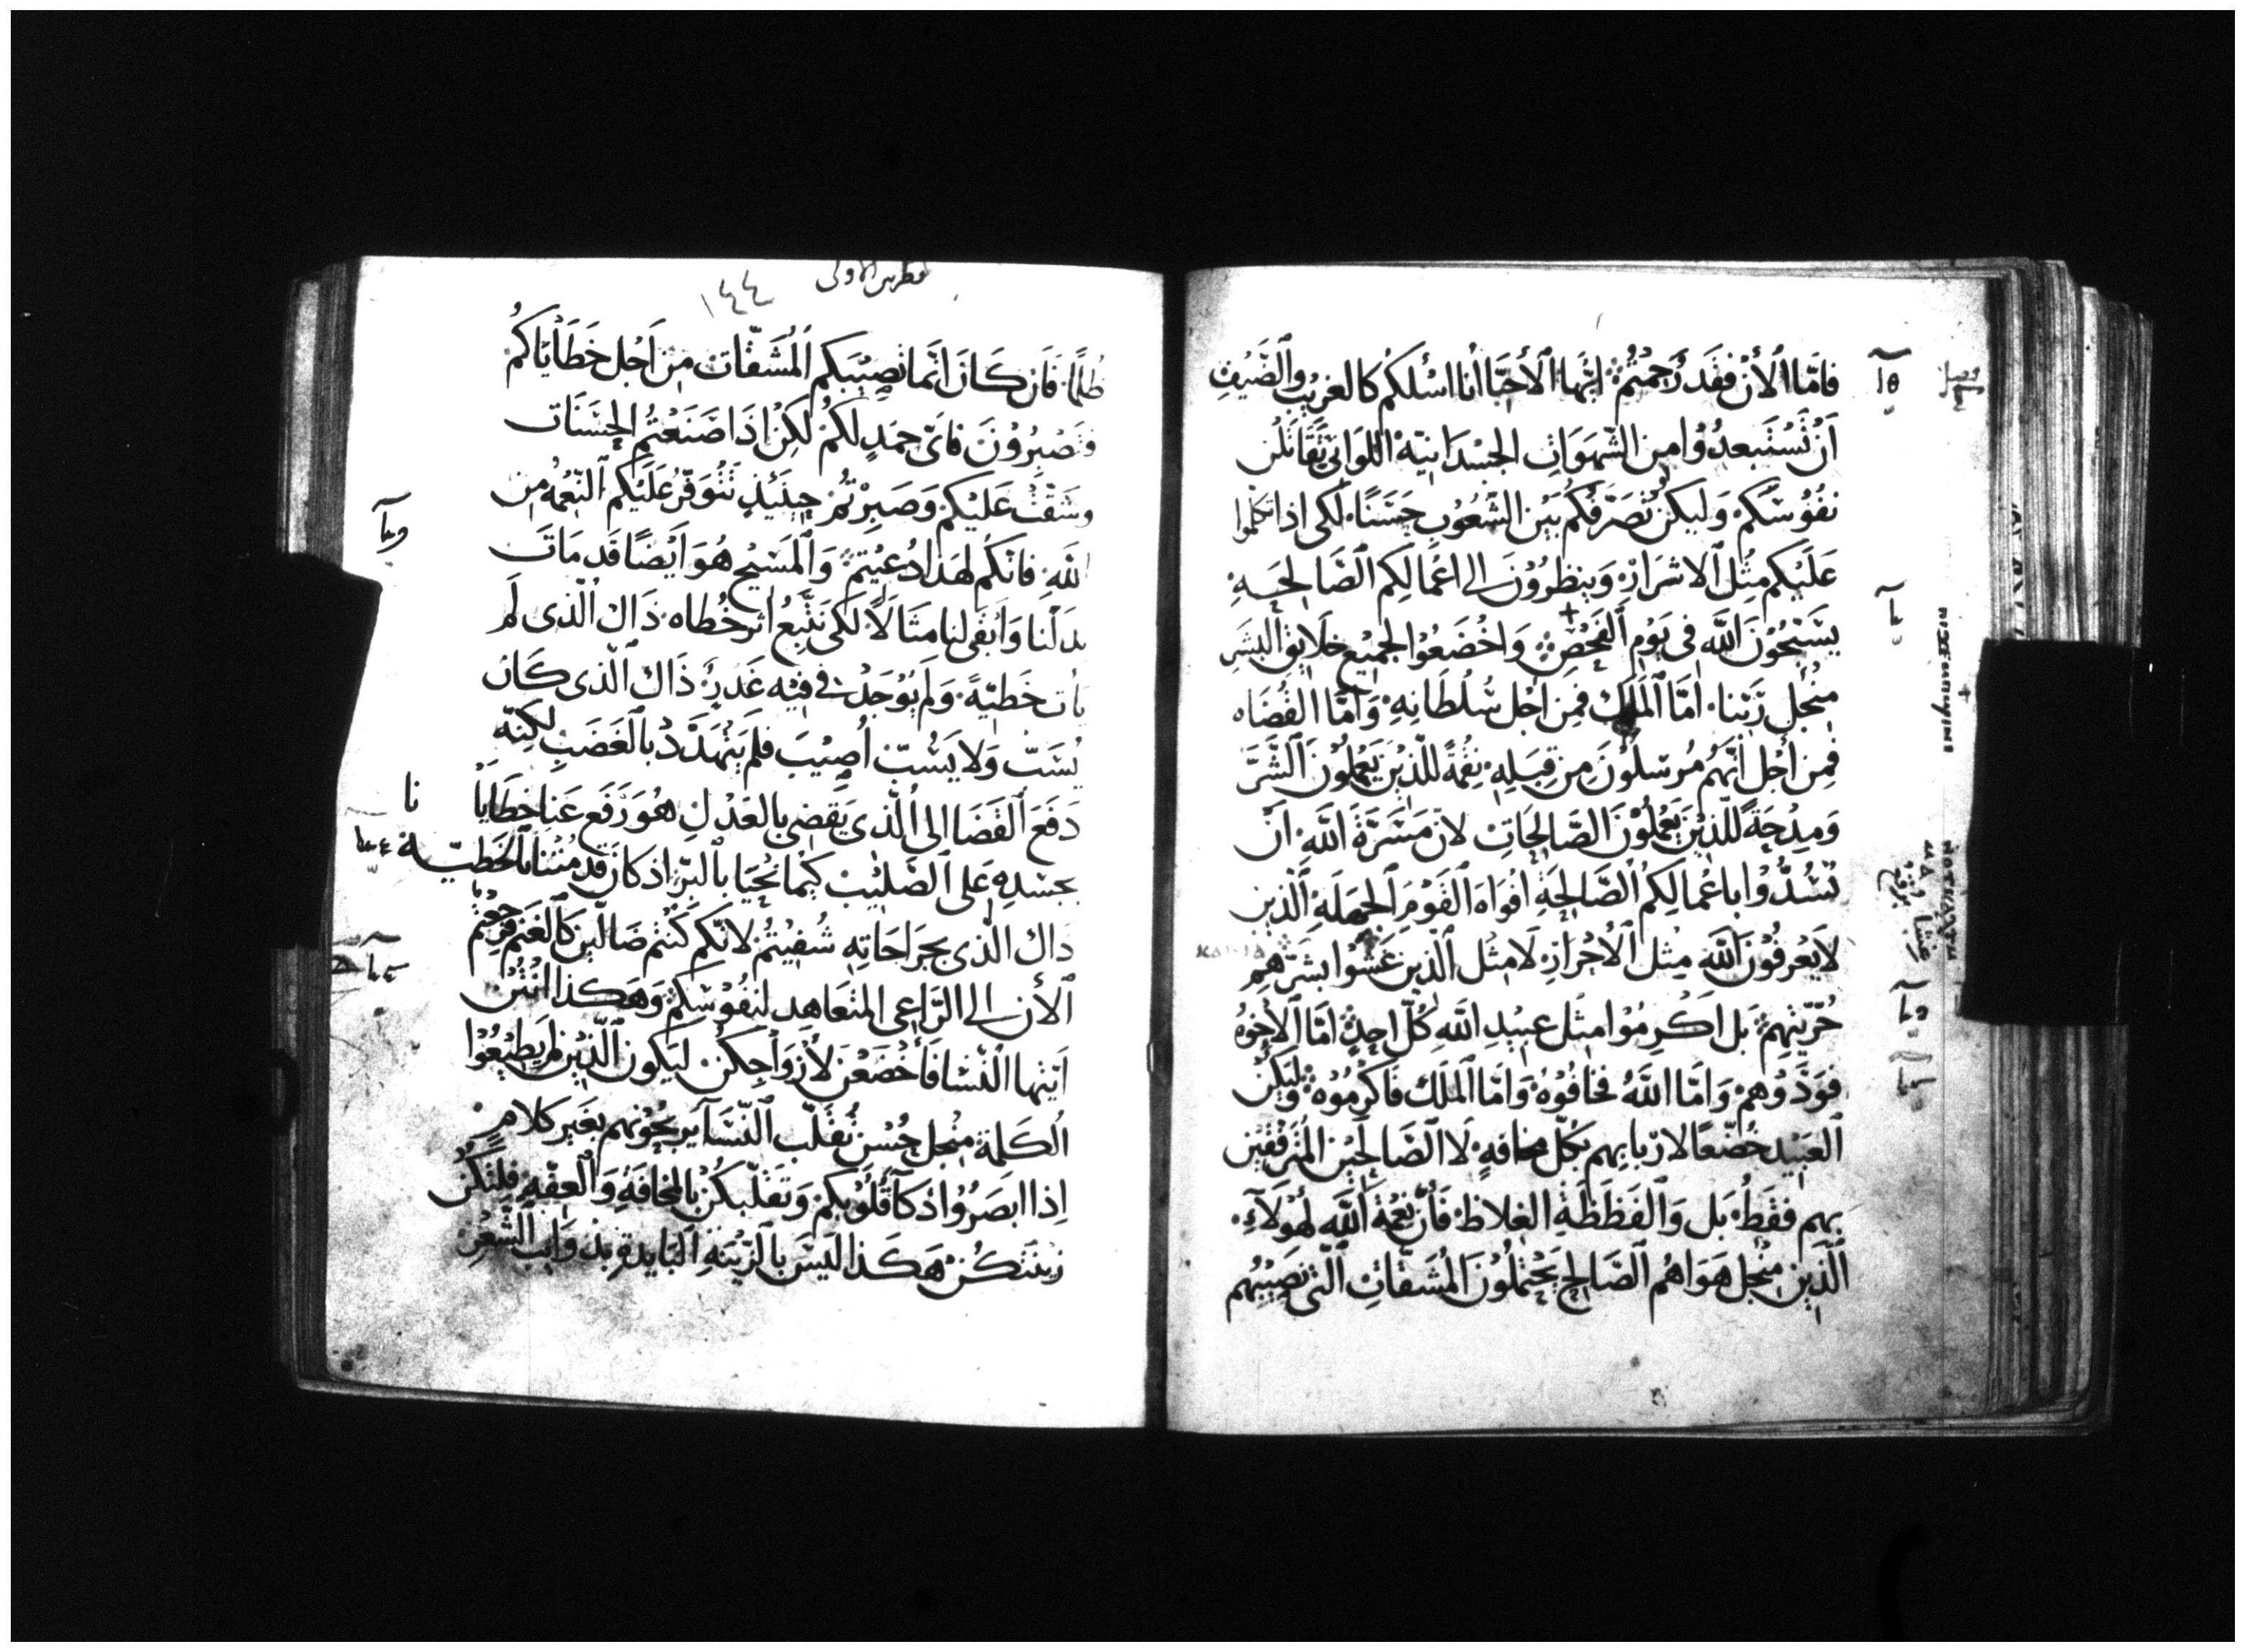 فامّا الأن فقد رُحمتُم ايّها الأحبّا انا اسئلكم كالغريب والضيف
أن تستبعدُوا من الشهوات الجسدانيّة اللواتي تقاتلن
نفُوسكم وليكن تصرّفكم بين الشعُوبِ حسنًا لكى اذا تكلموا
عليكم مثل الاشرار وينظرُون الى اعمالكم الصالحه
يسبّحُون الله فى يوم الفحص واخضعُوا لجميع خلايق البشر
منجل ربّنا امّا الملك فمن اجل سُلطانه وامّا القضاه
فمن أجل انّهم مُرسلُون من قِبَلِه نقمةً للّذين يعملون الشرّ
ومدحةً للذين يعملُون الصّالحات لان مسرّة الله ان
تسُدُّوا باعمالكم الصّالحة افواه القوم الجهله الذين
لا يعرفُون الله مثل الاحرار لا مثل الذين غشوا بشرّهم
حُرّيتهم بل اكرمُوا مثل عبيد الله كُلّ احدٍ امّا الاخوهُ
فودّوهم وامّا الله فخافُوهُ وامّا الملك فاكرمُوه وليكن
العبيد خضّعًا لاربابهم بكلّ مخافةٍ لا الصالحين المترفقين
بهم فقط بل والفظظة الغلاظ فانّ نعمة الله لهولاءِ
الّذين منجل هواهُم الصالح يحتملُون المُشقّات التى تصيبُهم
بطرس الاولى
١٤٤
ظلمًا فان كان انّما تصيبكم المُشقّات من اجل خطاياكُم
وتصبرُون فاىّ حمدٍ لكم لكن اذا صنعتُم الحسنات
وشقّت عليكم وصبرتُم حينئذٍ تتُوفّر عليكم النّعمة من
الله فانكم لهذا دُعيتم والمسيح هُو ايضًا قد مات
بدلنا وابقى لنا مثالاً لكى نتّبع اثر خُطاه ذاك الّذى لم
يأت خطيّة ولم يُوجد في فيه غدرٌ ذاك الذى كان
يُسَبّ ولا يسُبّ اُصيب فلم يتهدّد بالغضب لكنّه
دفع القضا الى الّذى يقضى بالعدل هُو رفع عنا خطايا
نا
بجسده على الصّليب كيما نحيا بالبرّ اذ كان قد مُتنا بالخطيّة
ذاك الذى بجراحاته شُفيتُم لانّكم كُنتُم ضالّين كالغنم فرجعتم
الأن الى الرّاعى المتعاهد لنفُوسكم وهكذا انتُن
ايّتها النّسا فأخضعن لأزواجكُن ليكون الّذين لم يطيعُوا
الكلمة منجل حُسن تُقلّب النّسا يربحُونهم بغير كلامٍ
اذا ابصرُوا ذكآ قُلُوبكم وتقلّبكُن بالمخافة والعفّه فلتكُن
زينتكُن هكذا ليس بالزّينة البايده